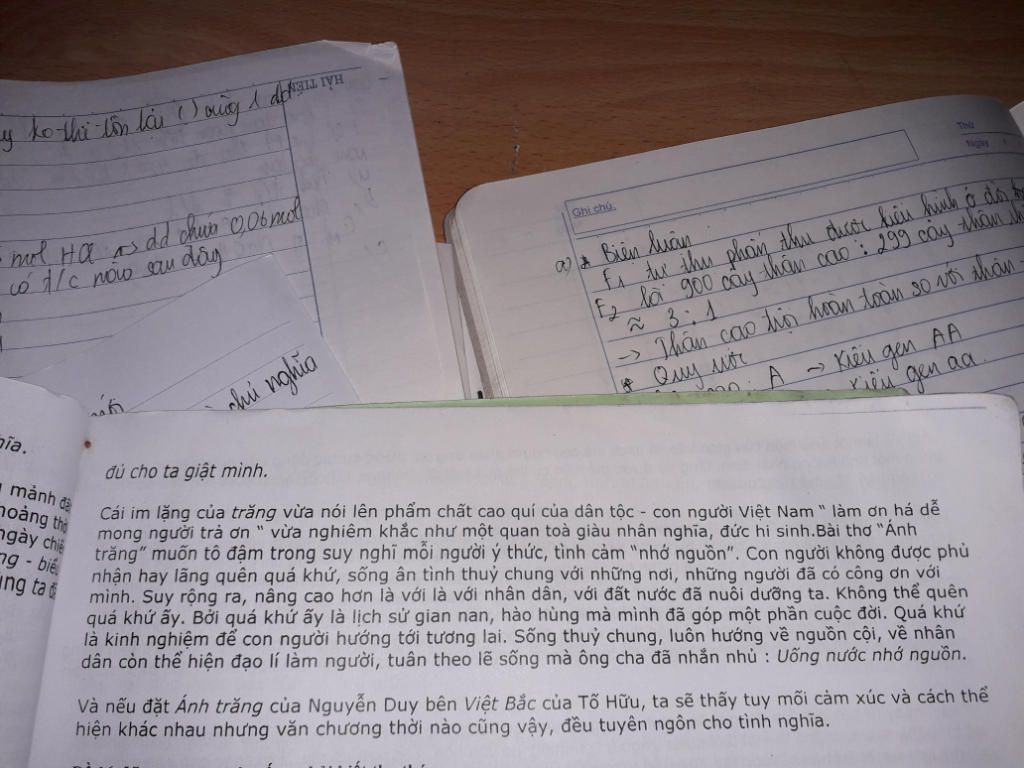 HẢI TIẾN
ko thể tồn tại () cùng 1 dd
mol HCl → dd chứa 0,06 mol
có t/c nào sau đây
chủ nghĩa
Thứ
Ngày
Ghi chú:
a) * Biện luận
F1 tự thụ phấn thu được kiểu hình ở
F2 là 900 cây thân cao : 299 cây thân
≈ 3 : 1
→ Thân cao trội hoàn toàn so với thân
* Quy ước
A → Kiểu gen AA
Kiểu gen aa.
mảnh
ng - biể
ung ta
đủ cho ta giật mình.
Cái im lặng của trăng vừa nói lên phẩm chất cao quí của dân tộc - con người Việt Nam “ làm ơn há dễ
mong người trả ơn “ vừa nghiêm khắc như một quan toà giàu nhân nghĩa, đức hi sinh.Bài thơ “Ánh
trăng” muốn tô đậm trong suy nghĩ mỗi người ý thức, tình cảm “nhớ nguồn”. Con người không được phủ
nhận hay lãng quên quá khứ, sống ân tình thuỷ chung với những nơi, những người đã có công ơn với
mình. Suy rộng ra, nâng cao hơn là với là với nhân dân, với đất nước đã nuôi dưỡng ta. Không thể quên
quá khứ ấy. Bởi quá khứ ấy là lịch sử gian nan, hào hùng mà mình đã góp một phần cuộc đời. Quá khứ
là kinh nghiệm để con người hướng tới tương lai. Sống thuỷ chung, luôn hướng về nguồn cội, về nhân
dân còn thể hiện đạo lí làm người, tuân theo lẽ sống mà ông cha đã nhắn nhủ : Uống nước nhớ nguồn.
Và nếu đặt Ánh trăng của Nguyễn Duy bên Việt Bắc của Tố Hữu, ta sẽ thấy tuy mối cảm xúc và cách thể
hiện khác nhau nhưng văn chương thời nào cũng vậy, đều tuyên ngôn cho tình nghĩa.